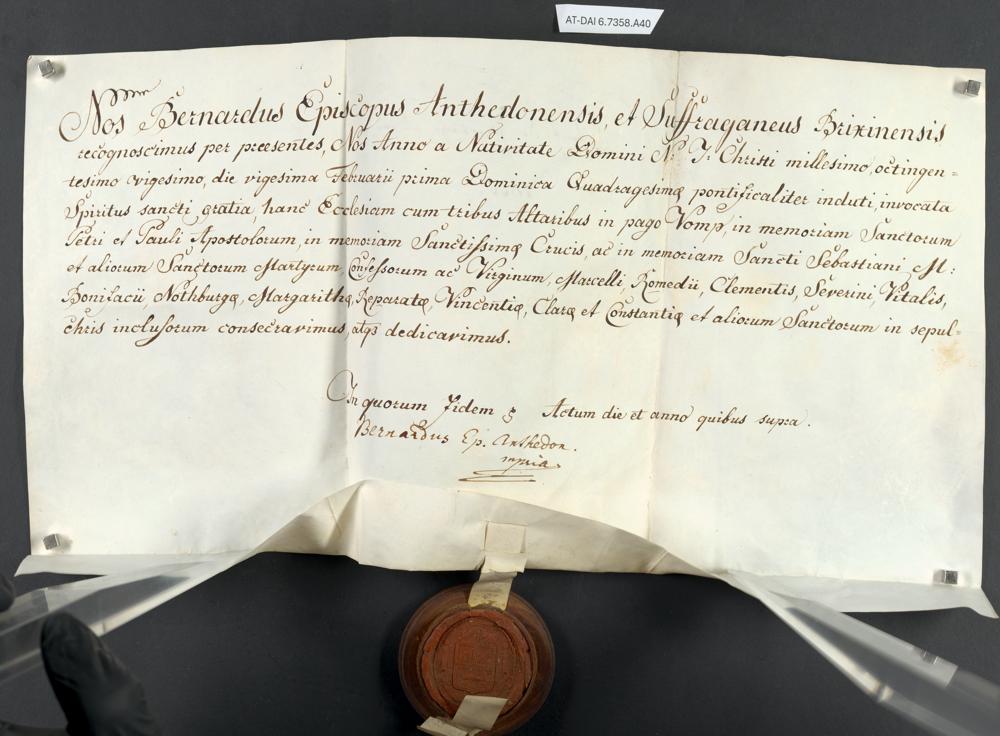 AT-DAI 6.7358.A40
Nos Bernardus Episcopus Anthedonensis, et Suffraganeus Brixinensis
recognoscimus per præsentes, Nos Anno a Nativitate Domini N: J: Christi millesimo, octingen=
tesimo vigesimo, die vigesima Februarii prima Dominica Quadragesimæ pontificaliter induti, invocata
Spiritus sancti gratia, hanc Ecclesiam cum tribus Altaribus in pago Vomp, in memoriam Sanctorum
Petri et Pauli Apostolorum, in memoriam Sanctissimæ Crucis, ac in memoriam Sancti Sebastiani M:
et aliorum Sanctorum Martyrum, Confessorum ac Virginum, Marcelli, Romedii, Clementis, Severini, Vitalis,
Bonifacii, Nothburgæ, Margarithæ, Reparatæ, Vincentiæ, Claræ et Constantiæ et aliorum Sanctorum in sepul=
chris inclusorum consecravimus, atqs dedicavimus.
In quorum Fidem Actum die et anno quibus supra.
Bernardus Ep. Anthedon.
mpria.